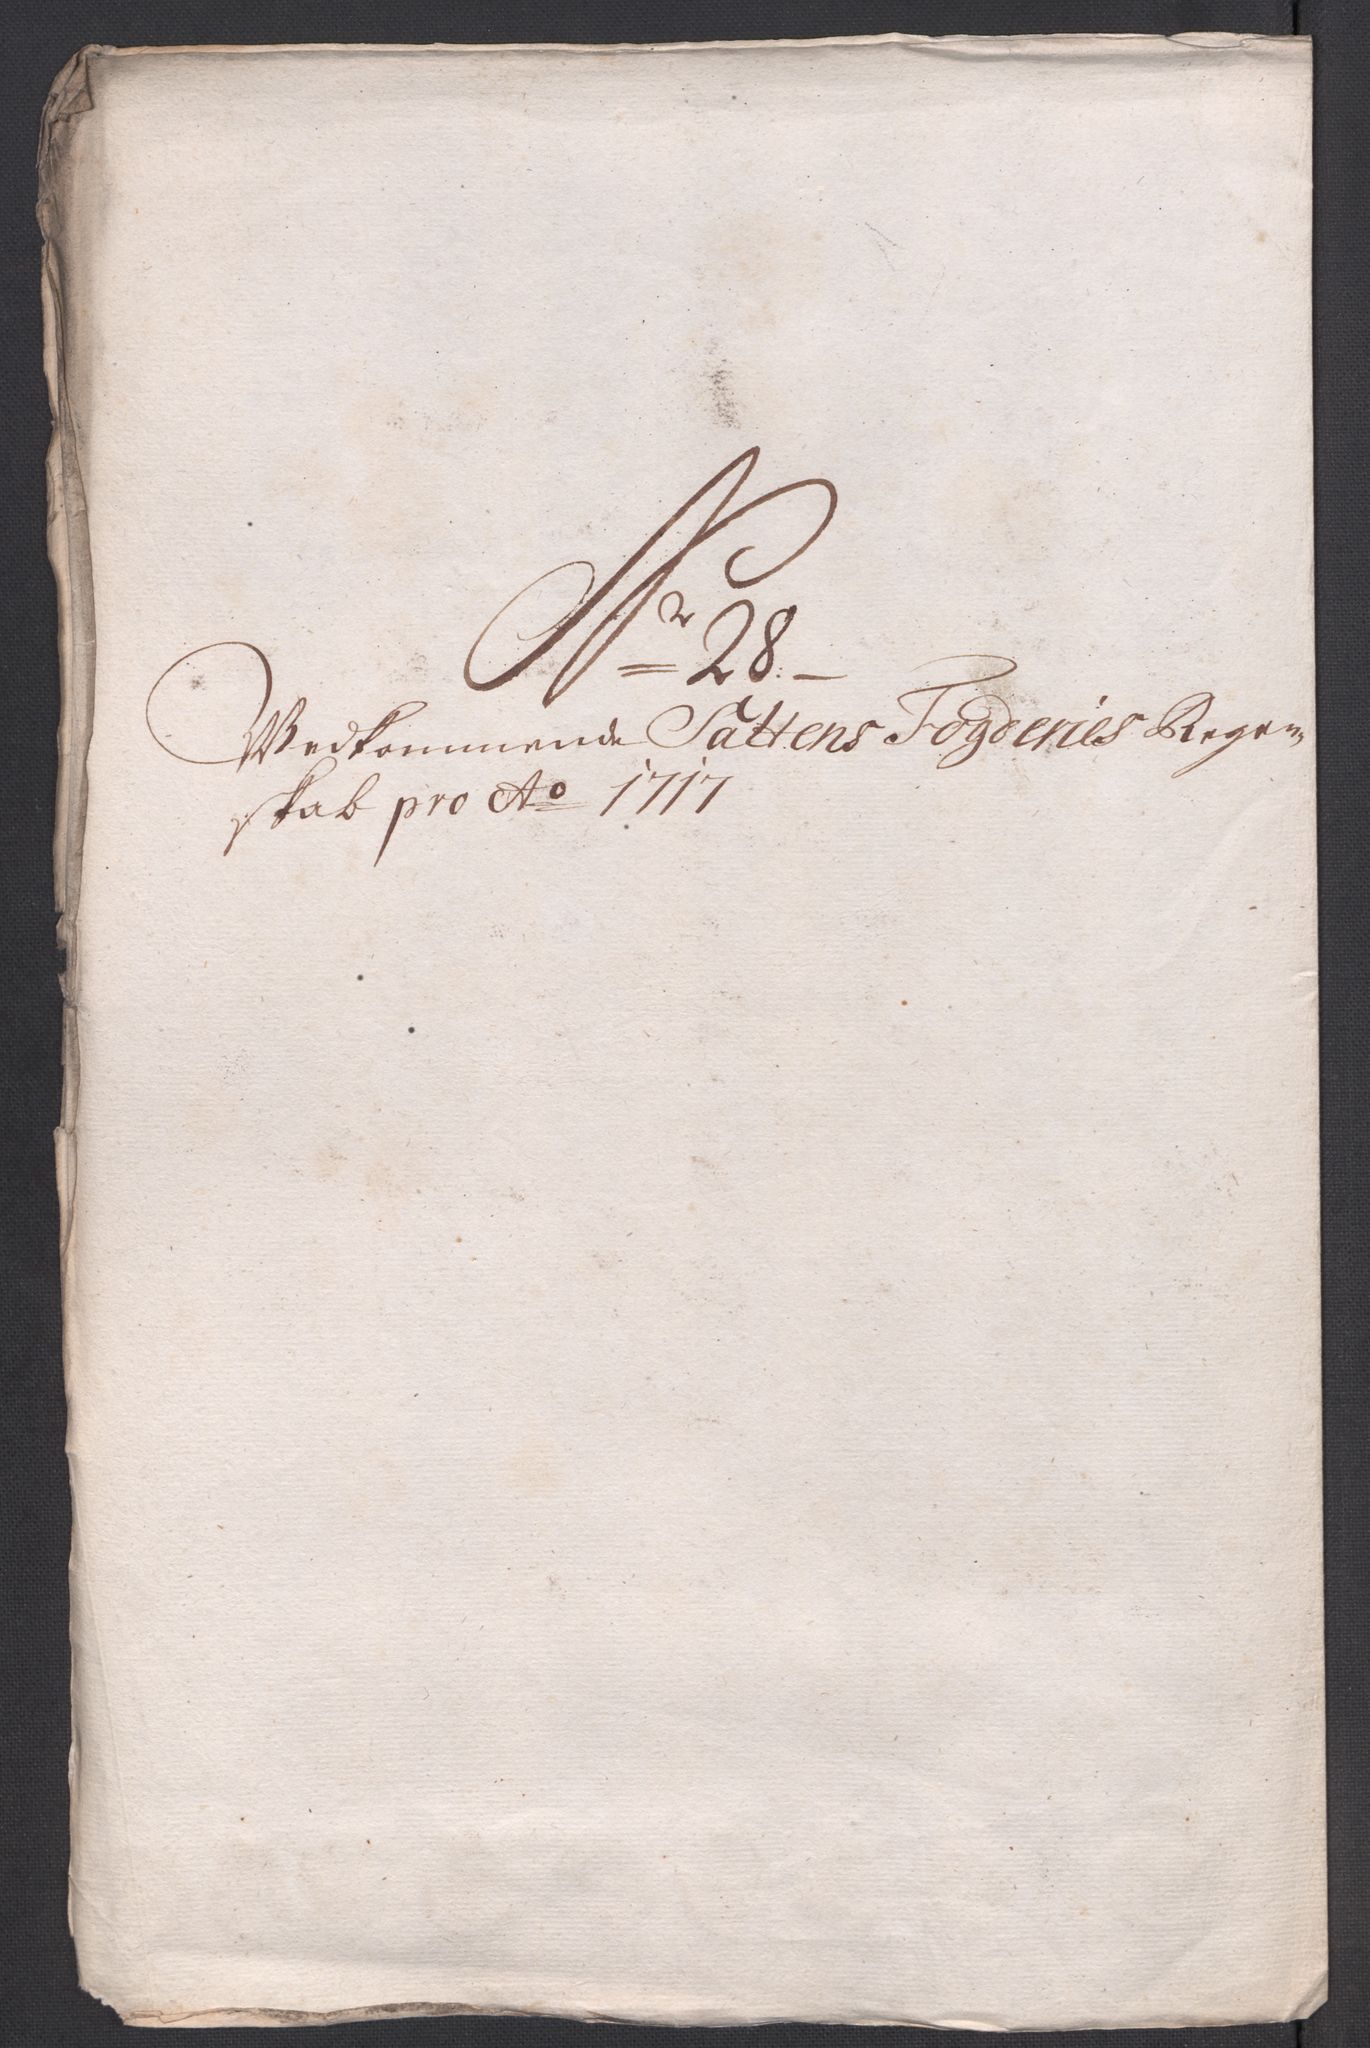 Nr 28.
Vedkommende Saltens Fogderies Regen-
skab pro Ao 1717